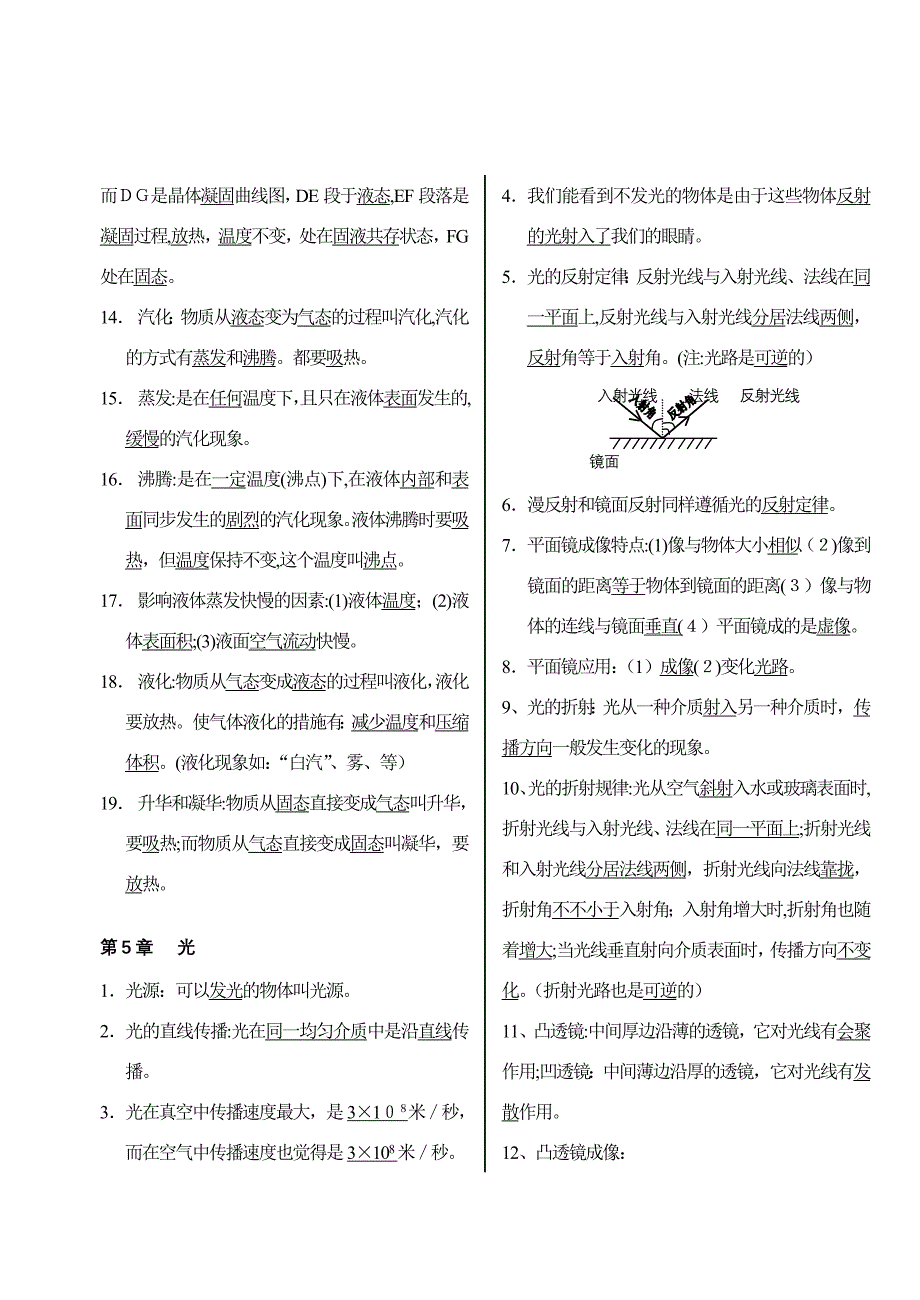 而ＤＧ是晶体凝固曲线图，DE 段于液态,EF 段落是
凝固过程,放热，温度不变，处在固液共存状态，FG
处在固态。
14． 汽化：物质从液态变为气态的过程叫汽化,汽化
的方式有蒸发和沸腾。都要吸热。
15． 蒸发:是在任何温度下，且只在液体表面发生的,
缓慢的汽化现象。
16． 沸腾:是在一定温度(沸点)下,在液体内部和表
面同步发生的剧烈的汽化现象。液体沸腾时要吸
热，但温度保持不变,这个温度叫沸点。
17． 影响液体蒸发快慢的因素:(1)液体温度；(2)液
体表面积;(3)液面空气流动快慢。
18． 液化:物质从气态变成液态的过程叫液化，液化
要放热。使气体液化的措施有：减少温度和压缩
体积。(液化现象如：“白汽”、雾、等）
19． 升华和凝华:物质从固态直接变成气态叫升华，
要吸热;而物质从气态直接变成固态叫凝华，要
放热。
第５章 光
1．光源：可以发光的物体叫光源。
2．光的直线传播:光在同一均匀介质中是沿直线传
播。
3．光在真空中传播速度最大，是 3×1０⁸米／秒，
而在空气中传播速度也觉得是 3×10⁸ 米／秒。
4．我们能看到不发光的物体是由于这些物体反射
的光射入了我们的眼睛。
5．光的反射定律：反射光线与入射光线、法线在同
一平面上,反射光线与入射光线分居法线两侧，
反射角等于入射角。(注:光路是可逆的）
入射光线 法线 反射光线
入射角 反射角
镜面
6．漫反射和镜面反射同样遵循光的反射定律。
7．平面镜成像特点:(1)像与物体大小相似（２)像到
镜面的距离等于物体到镜面的距离(３）像与物
体的连线与镜面垂直(４）平面镜成的是虚像。
8．平面镜应用：（1）成像(２)变化光路。
9、光的折射：光从一种介质射入另一种介质时，传
播方向一般发生变化的现象。
10、光的折射规律:光从空气斜射入水或玻璃表面时,
折射光线与入射光线、法线在同一平面上;折射光线
和入射光线分居法线两侧，折射光线向法线靠拢，
折射角不不小于入射角；入射角增大时,折射角也随
着增大;当光线垂直射向介质表面时，传播方向不变
化。（折射光路也是可逆的）
11、凸透镜:中间厚边沿薄的透镜，它对光线有会聚
作用;凹透镜：中间薄边沿厚的透镜，它对光线有发
散作用。
12、凸透镜成像：